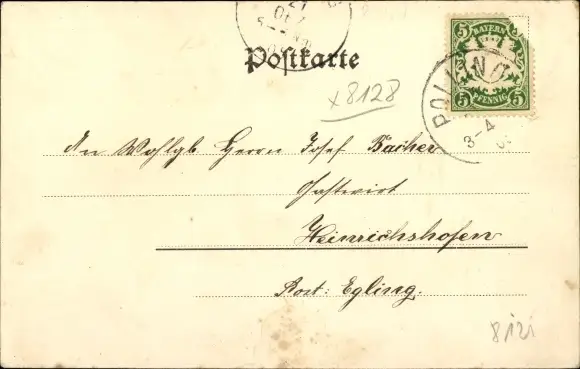 Postkarte
5 BAYERN 5
5 PFENNIG 5
POLLING
3-4
x8128
An Wohlgb. Herrn Josef Bacher
Gastwirt
Heinrichshofen
Post: Egling.
8121